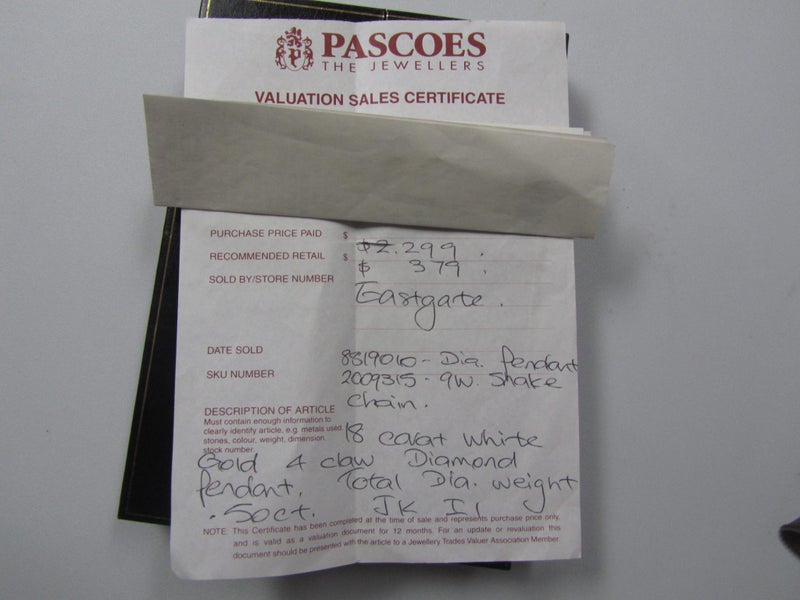 PASCOES
THE JEWELLERS
VALUATION SALES CERTIFICATE
PURCHASE PRICE PAID $ $2.299.
RECOMMENDED RETAIL $ $ 379.
SOLD BY/STORE NUMBER Eastgate.
DATE SOLD 8819010 - Dia. Pendant
SKU NUMBER 2009315 - 9W. Snake
Chain.
DESCRIPTION OF ARTICLE
Must contain enough information to
clearly identify article, e.g. metals used,
stones, colour, weight, dimension,
stock number. 18 carat White
Gold 4 claw Diamond
Pendant. Total Dia. weight
.50ct. JK I1
NOTE: This Certificate has been completed at the time of sale and represents purchase price only,
and is valid as a valuation document for 12 months. For an update or revaluation this
document should be presented with the article to a Jewellery Trades Valuer Association Member.